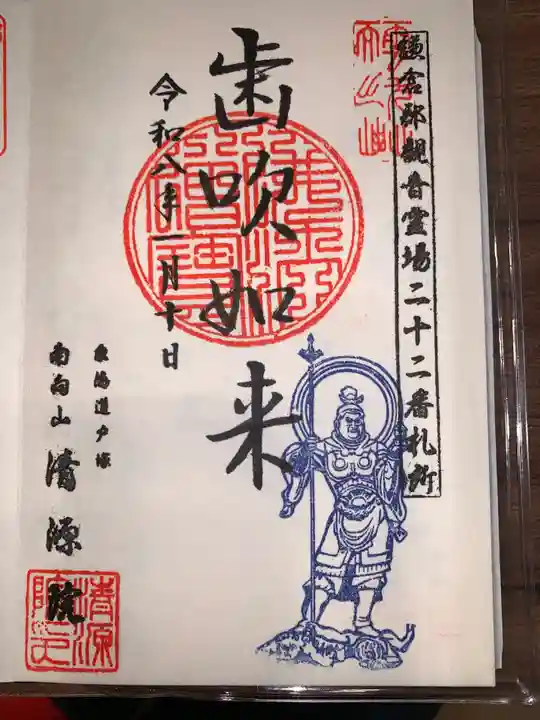 鎌倉郡観音霊場二十二番札所
歯吹如来
令和八年一月十日
東海道戸塚
南向山 清源院
清源院印